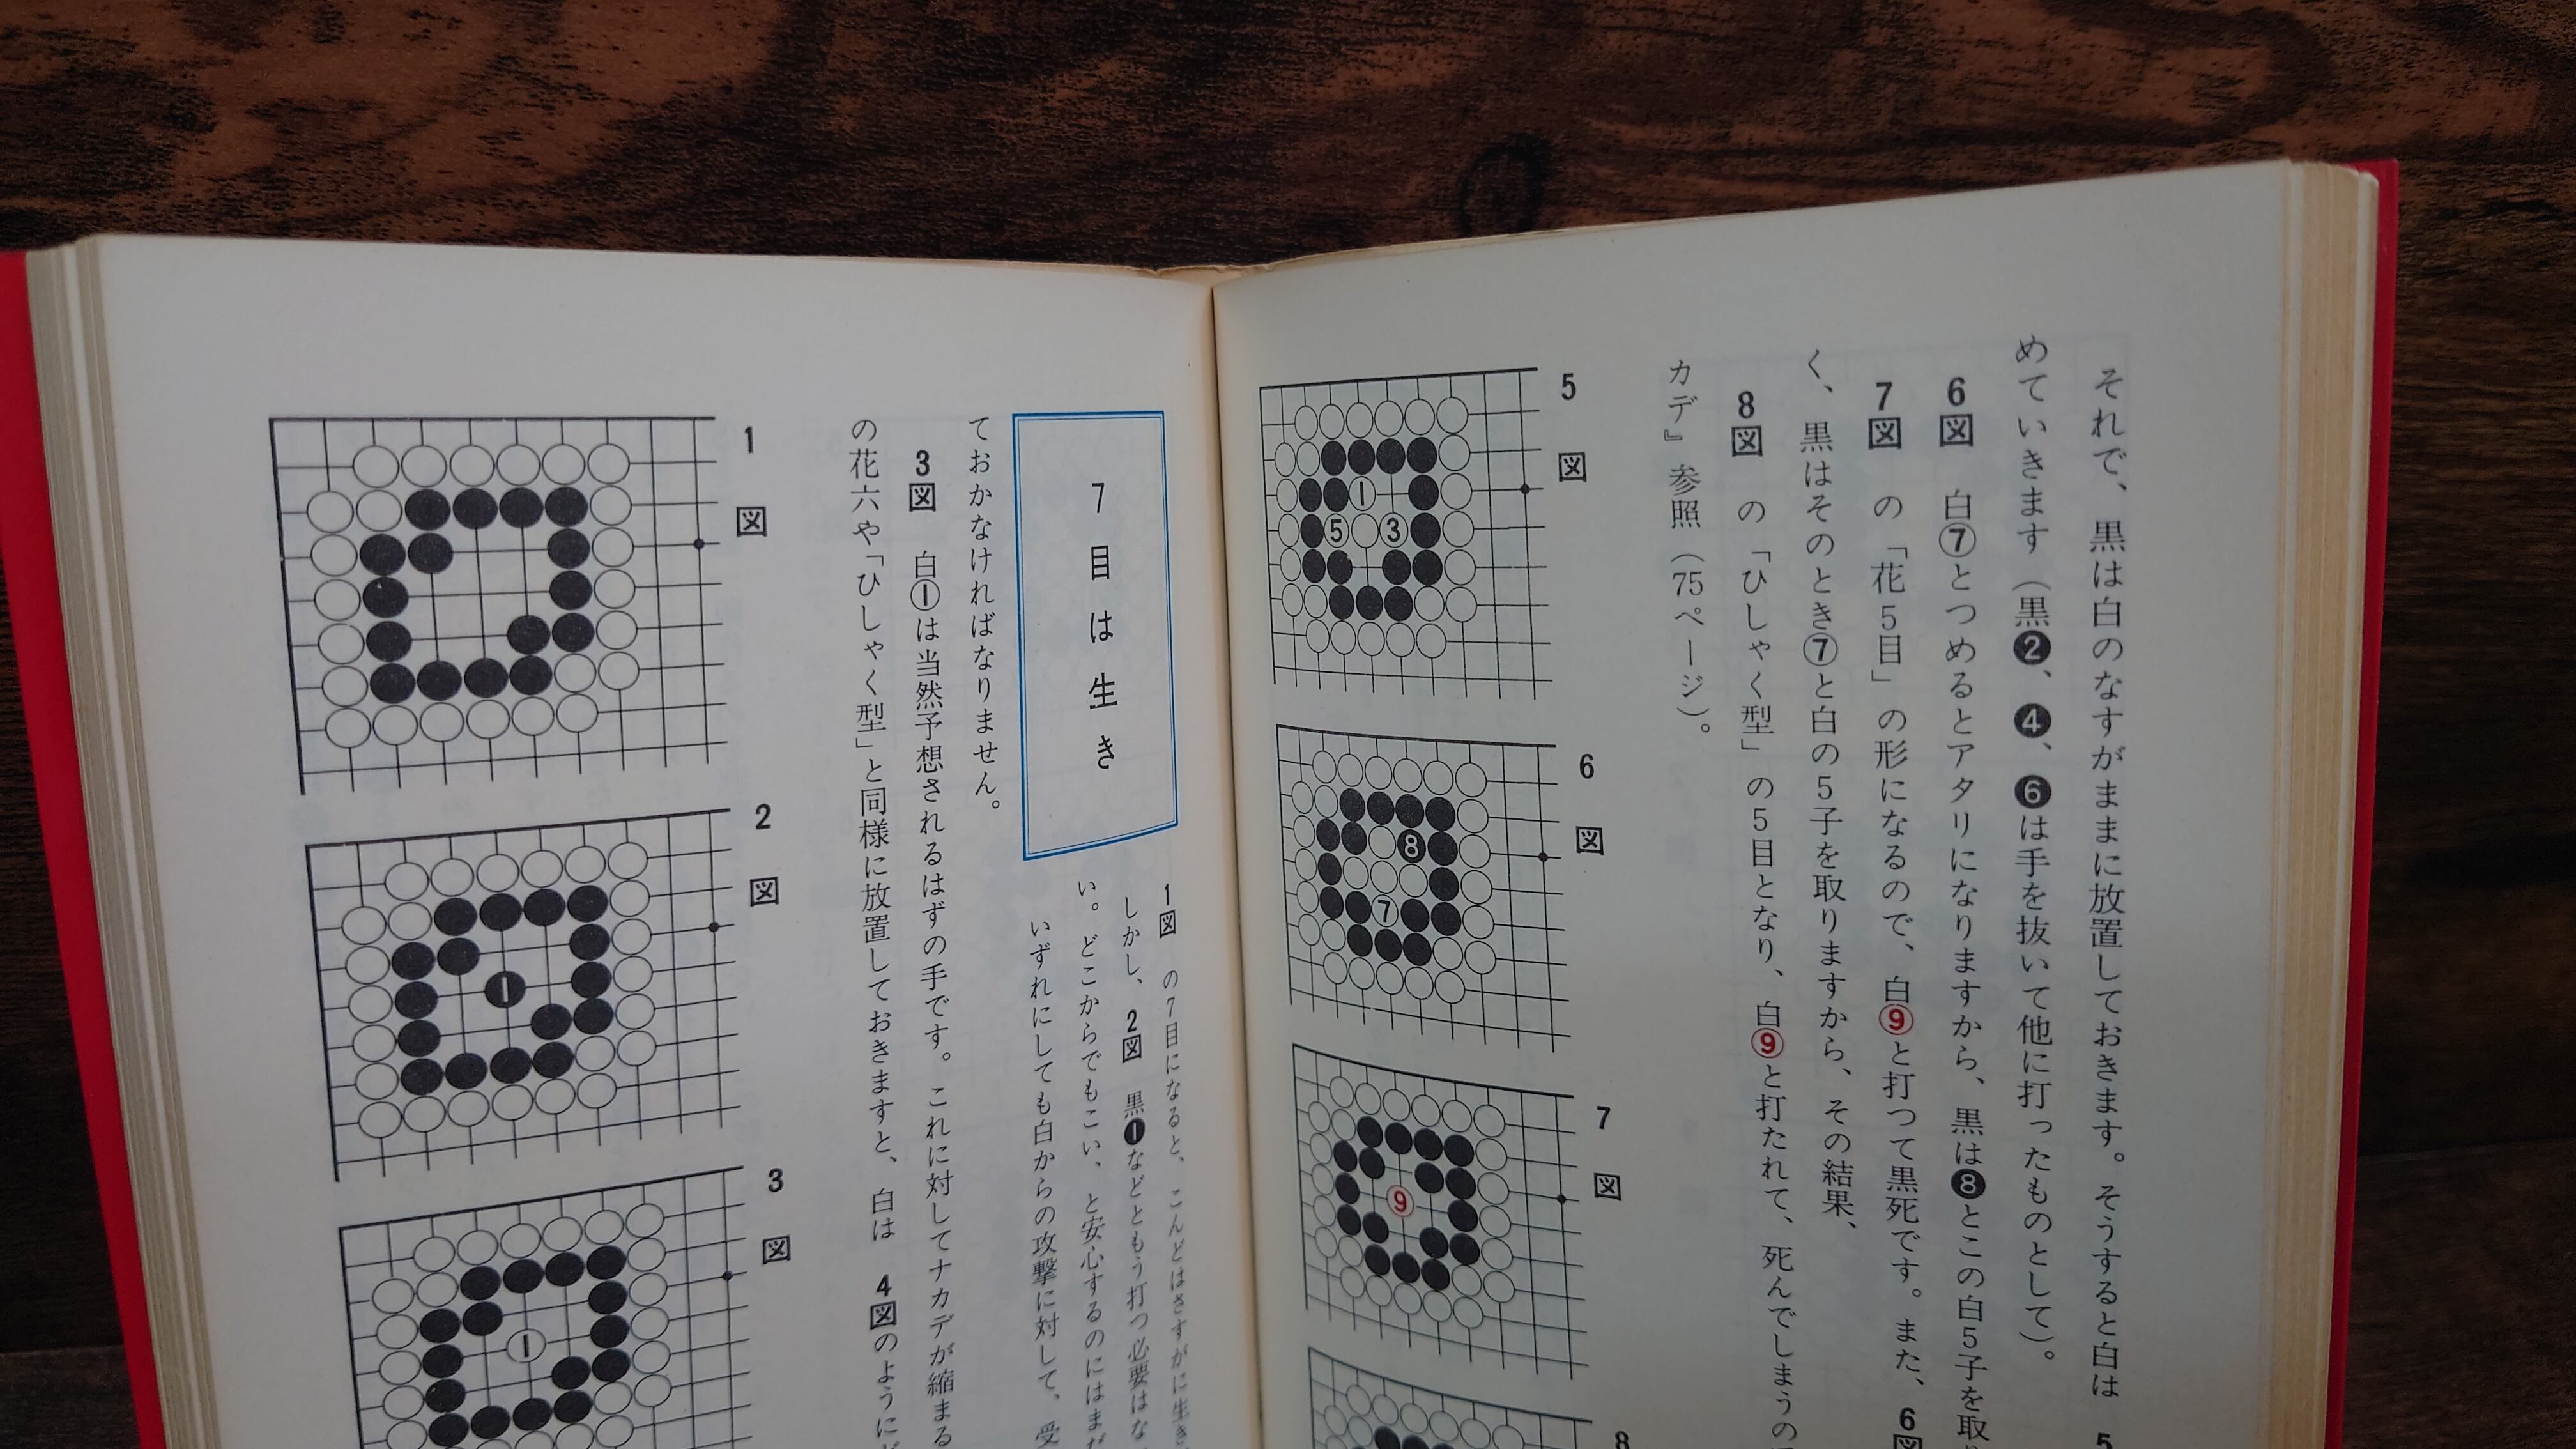 それで、黒は白のなすがままに放置しておきます。そうすると白は 5
めていきます（黒❷、❹、❻は手を抜いて他に打ったものとして）。
6図 白⑦とつめるとアタリになりますから、黒は❽とこの白5子を取
7図 の「花5目」の形になるので、白⑨と打つて黒死です。また、6図
く、黒はそのとき⑦と白の5子を取りますから、その結果、
8図 の「ひしゃく型」の5目となり、白⑨と打たれて、死んでしまうの
カデ』参照（75ページ）。
5図
1
5
3
6図
8
7
7図
9
8
7目は生き
1図 の7目になると、こんどはさすがに生き
しかし、2図 黒❶などともう打つ必要はな
い。どこからでもこい、と安心するのにはまだ
いずれにしても白からの攻撃に対して、受
ておかなければなりません。
3図 白①は当然予想されるはずの手です。これに対してナカデが縮まる
の花六や「ひしゃく型」と同様に放置しておきますと、白は 4図のように
1図
2図
1
3図
1